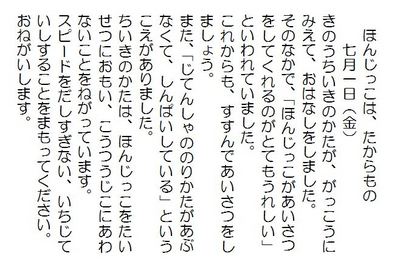 ほんじっこは、たからもの
七月一日（金）
きのうちいきのかたが、がっこうに
みえて、おはなしをしました。
そのなかで、「ほんじっこがあいさつ
をしてくれるのがとてもうれしい」
といわれていました。
これからも、すすんであいさつをし
ましょう。
また、「じてんしゃののりかたがあぶ
なくて、しんぱいしている」という
こえがありました。
ちいきのかたは、ほんじっこをたい
せつにおもい、こうつうじこにあわ
ないことをねがっています。
スピードをだしすぎない、いちじて
いしすることをまもってください。
おねがいします。